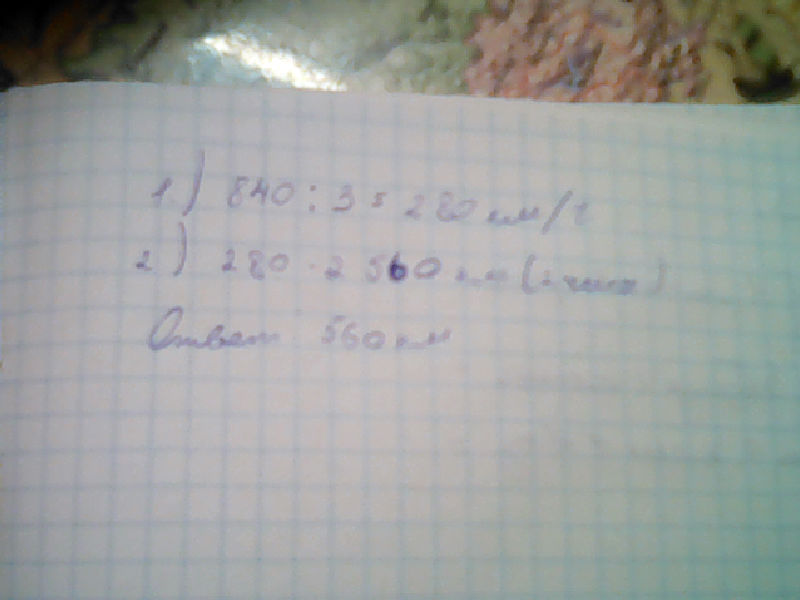 1) 840 : 3 = 280 км/ч
2) 280 · 2 560 км (2 часа)
Ответ: 560 км